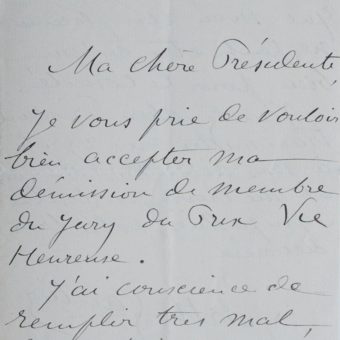 Ma chère Présidente,
Je vous prie de vouloir
bien accepter ma
démission de membre
du jury du Prix Vie
Heureuse.
J'ai conscience de
remplir très mal,